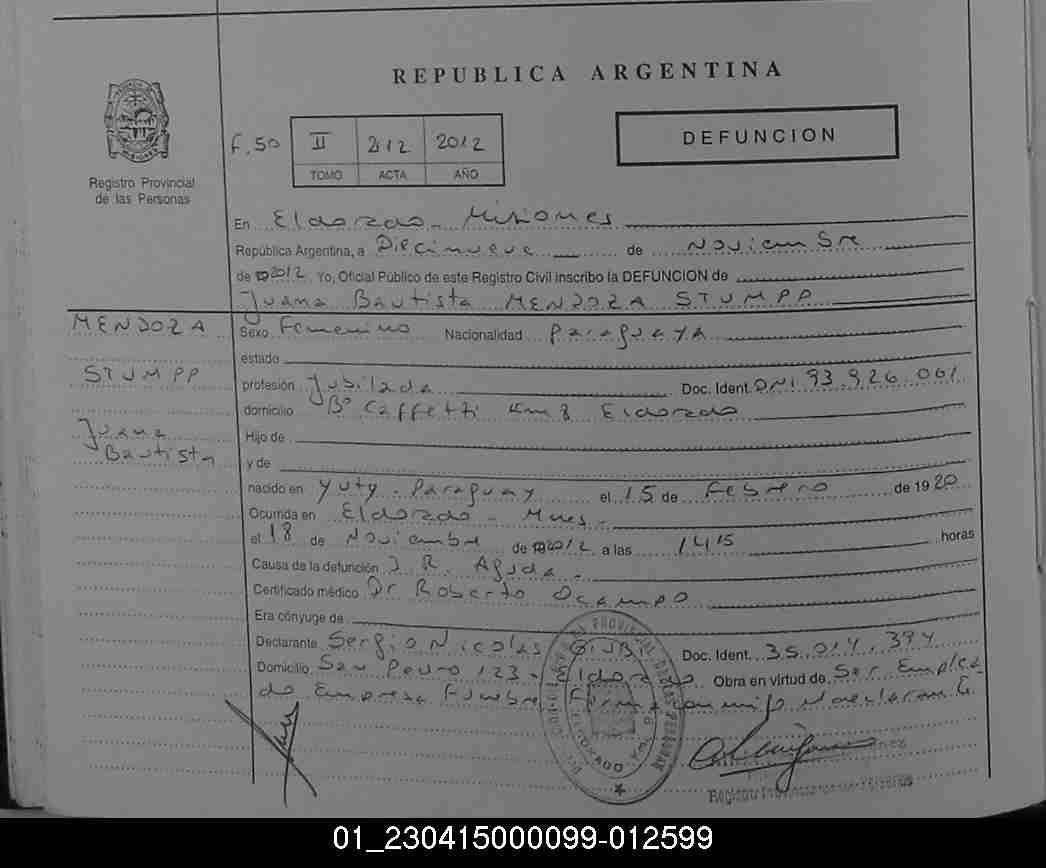 REPUBLICA ARGENTINA
Registro Provincial
de las Personas
F. 50 II 212 2012
TOMO ACTA AÑO
DEFUNCION
En Eldorado - Misiones
República Argentina, a Diecinueve de Noviembre
de 2012 Yo, Oficial Público de este Registro Civil inscribo la DEFUNCION de
Juana Bautista MENDOZA STUMPP
MENDOZA
STUMPP
Juana
Bautista
Sexo Femenino Nacionalidad Paraguaya
estado
profesión Jubilada Doc. Ident. DNI 93.926.061
domicilio Bº Caffetti Km 8 Eldorado
Hijo de
y de
nacido en Yuty - Paraguay el 15 de Febrero de 1920
Ocurrida en Eldorado - Mnes -
el 18 de Noviembre de 2012 a las 14 15 horas
Causa de la defunción I. R. Aguda -
Certificado médico Dr Roberto Ocampo
Era cónyuge de
Declarante Sergio Nicolas Doc. Ident. 35.014.394
Domicilio San Pedro 123 - Eldorado Obra en virtud de Ser Emplea
do Empresa Funebre. Firma conmigo el declarante
01_230415000099-012599